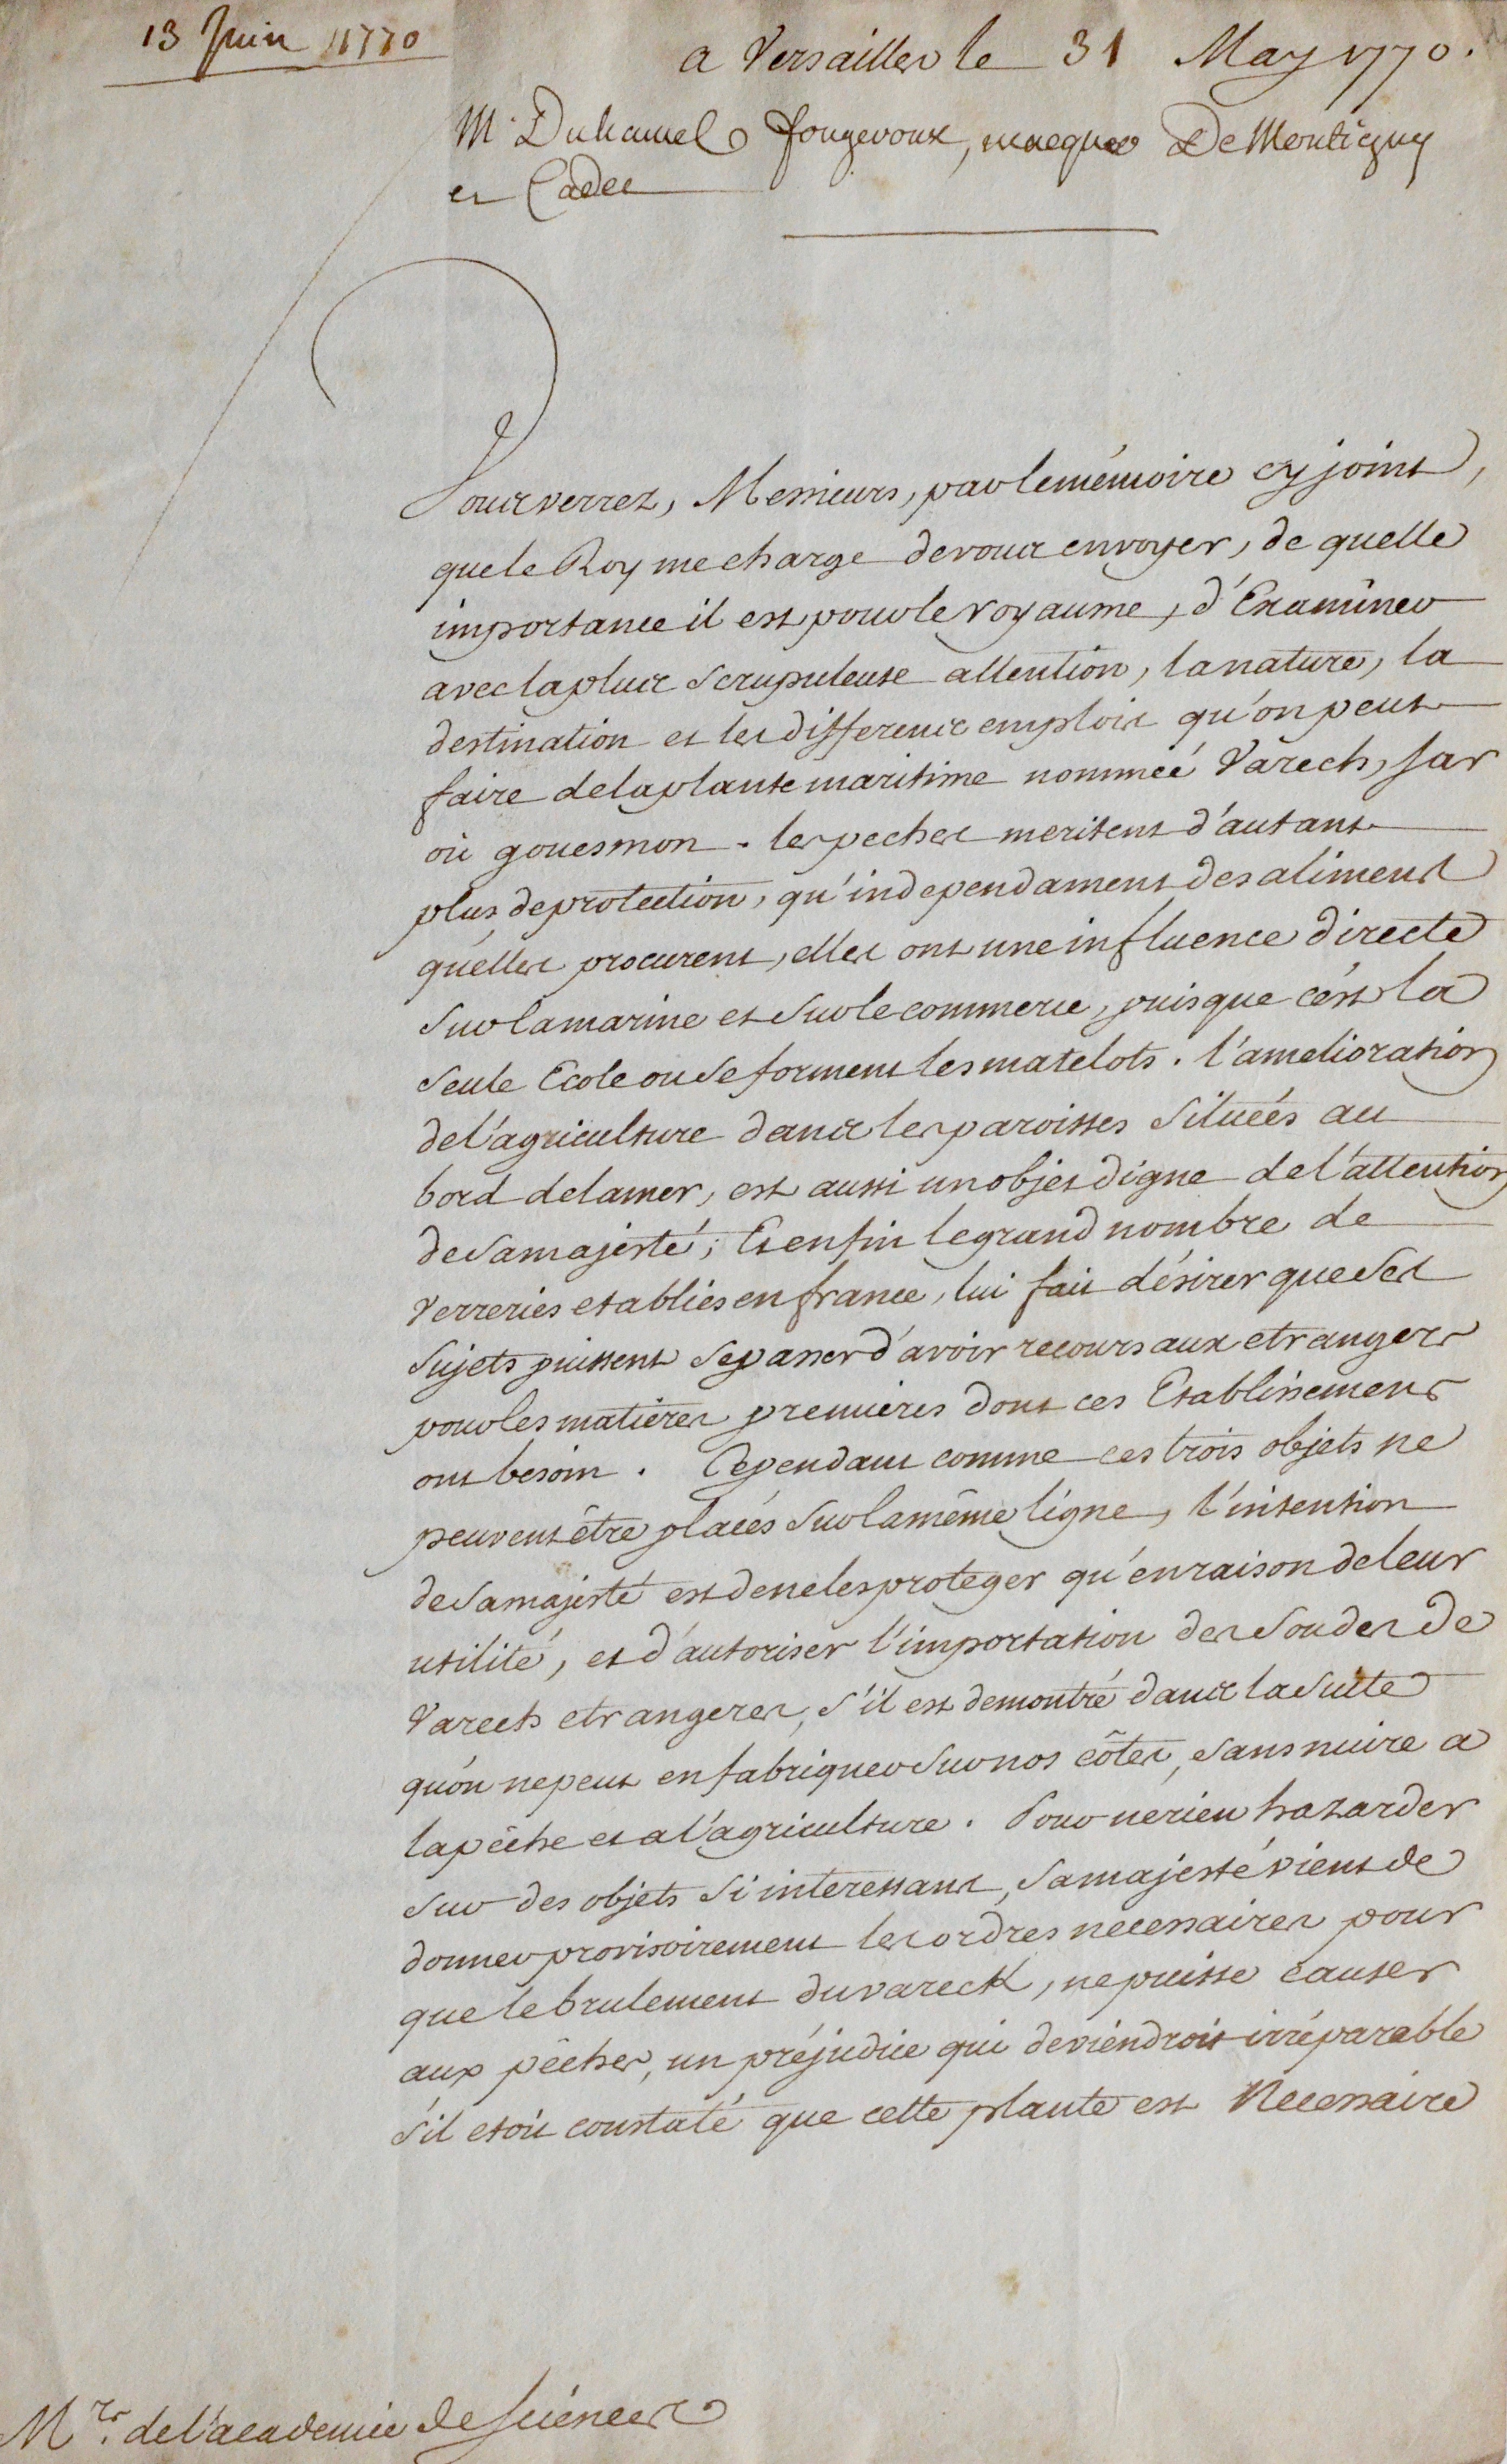 13 Juin 1770
a Versailles le 31 May 1770.
Mrs Duhamel fougeroux, macquer De Montigny
et Cadet
Vous verrez, Messieurs, par le mémoire cy joint,
que le Roy me charge de vous envoyer, de quelle
importance il est pour le royaume, d'Examiner
avec la plus scrupuleuse attention, la nature, la
destination et les differens emplois qu'on peut
faire de la plante maritime nommeé Varech, sar
où gouesmon. les peches meritent d'autant
plus de protection, qu'independament des alimens
qu'elles procurent, elles ont une influence directe
sur la marine et sur le commerce, puisque c'est la
seule Ecole ou se forment les matelots. l'amelioration
de l'agriculture dans les paroisses situeés au
bord de la mer, est aussi un objet digne de l'attention
de sa majesté; Et enfin le grand nombre de
Verreries etablies en france, lui fait désirer que ses
sujets puissent se passer d'avoir recours aux etrangers
pour les matieres premieres dont ces Etablissemens
ont besoin. Cependant comme ces trois objets ne
peuvent être placés sur la même ligne, l'intention
de sa majesté est de ne les proteger qu'en raison de leur
utilité, et d'autoriser l'importation des soudes de
Varech etrangeres, s'il est demontré dans la suite
qu'on ne peut en fabriquer sur nos côtes, sans nuire a
la pêche et a l'agriculture. Pour ne rien hazarder
sur des objets si interessans, sa majesté vient de
donner provisoirement les ordres necessaires pour
que le brulement du vareck, ne puisse causer
aux pêches, un préjudice qui deviendroit irréparable
s'il etoit constaté que cette plante est Necessaire
Mrs. de l'academie de sciences